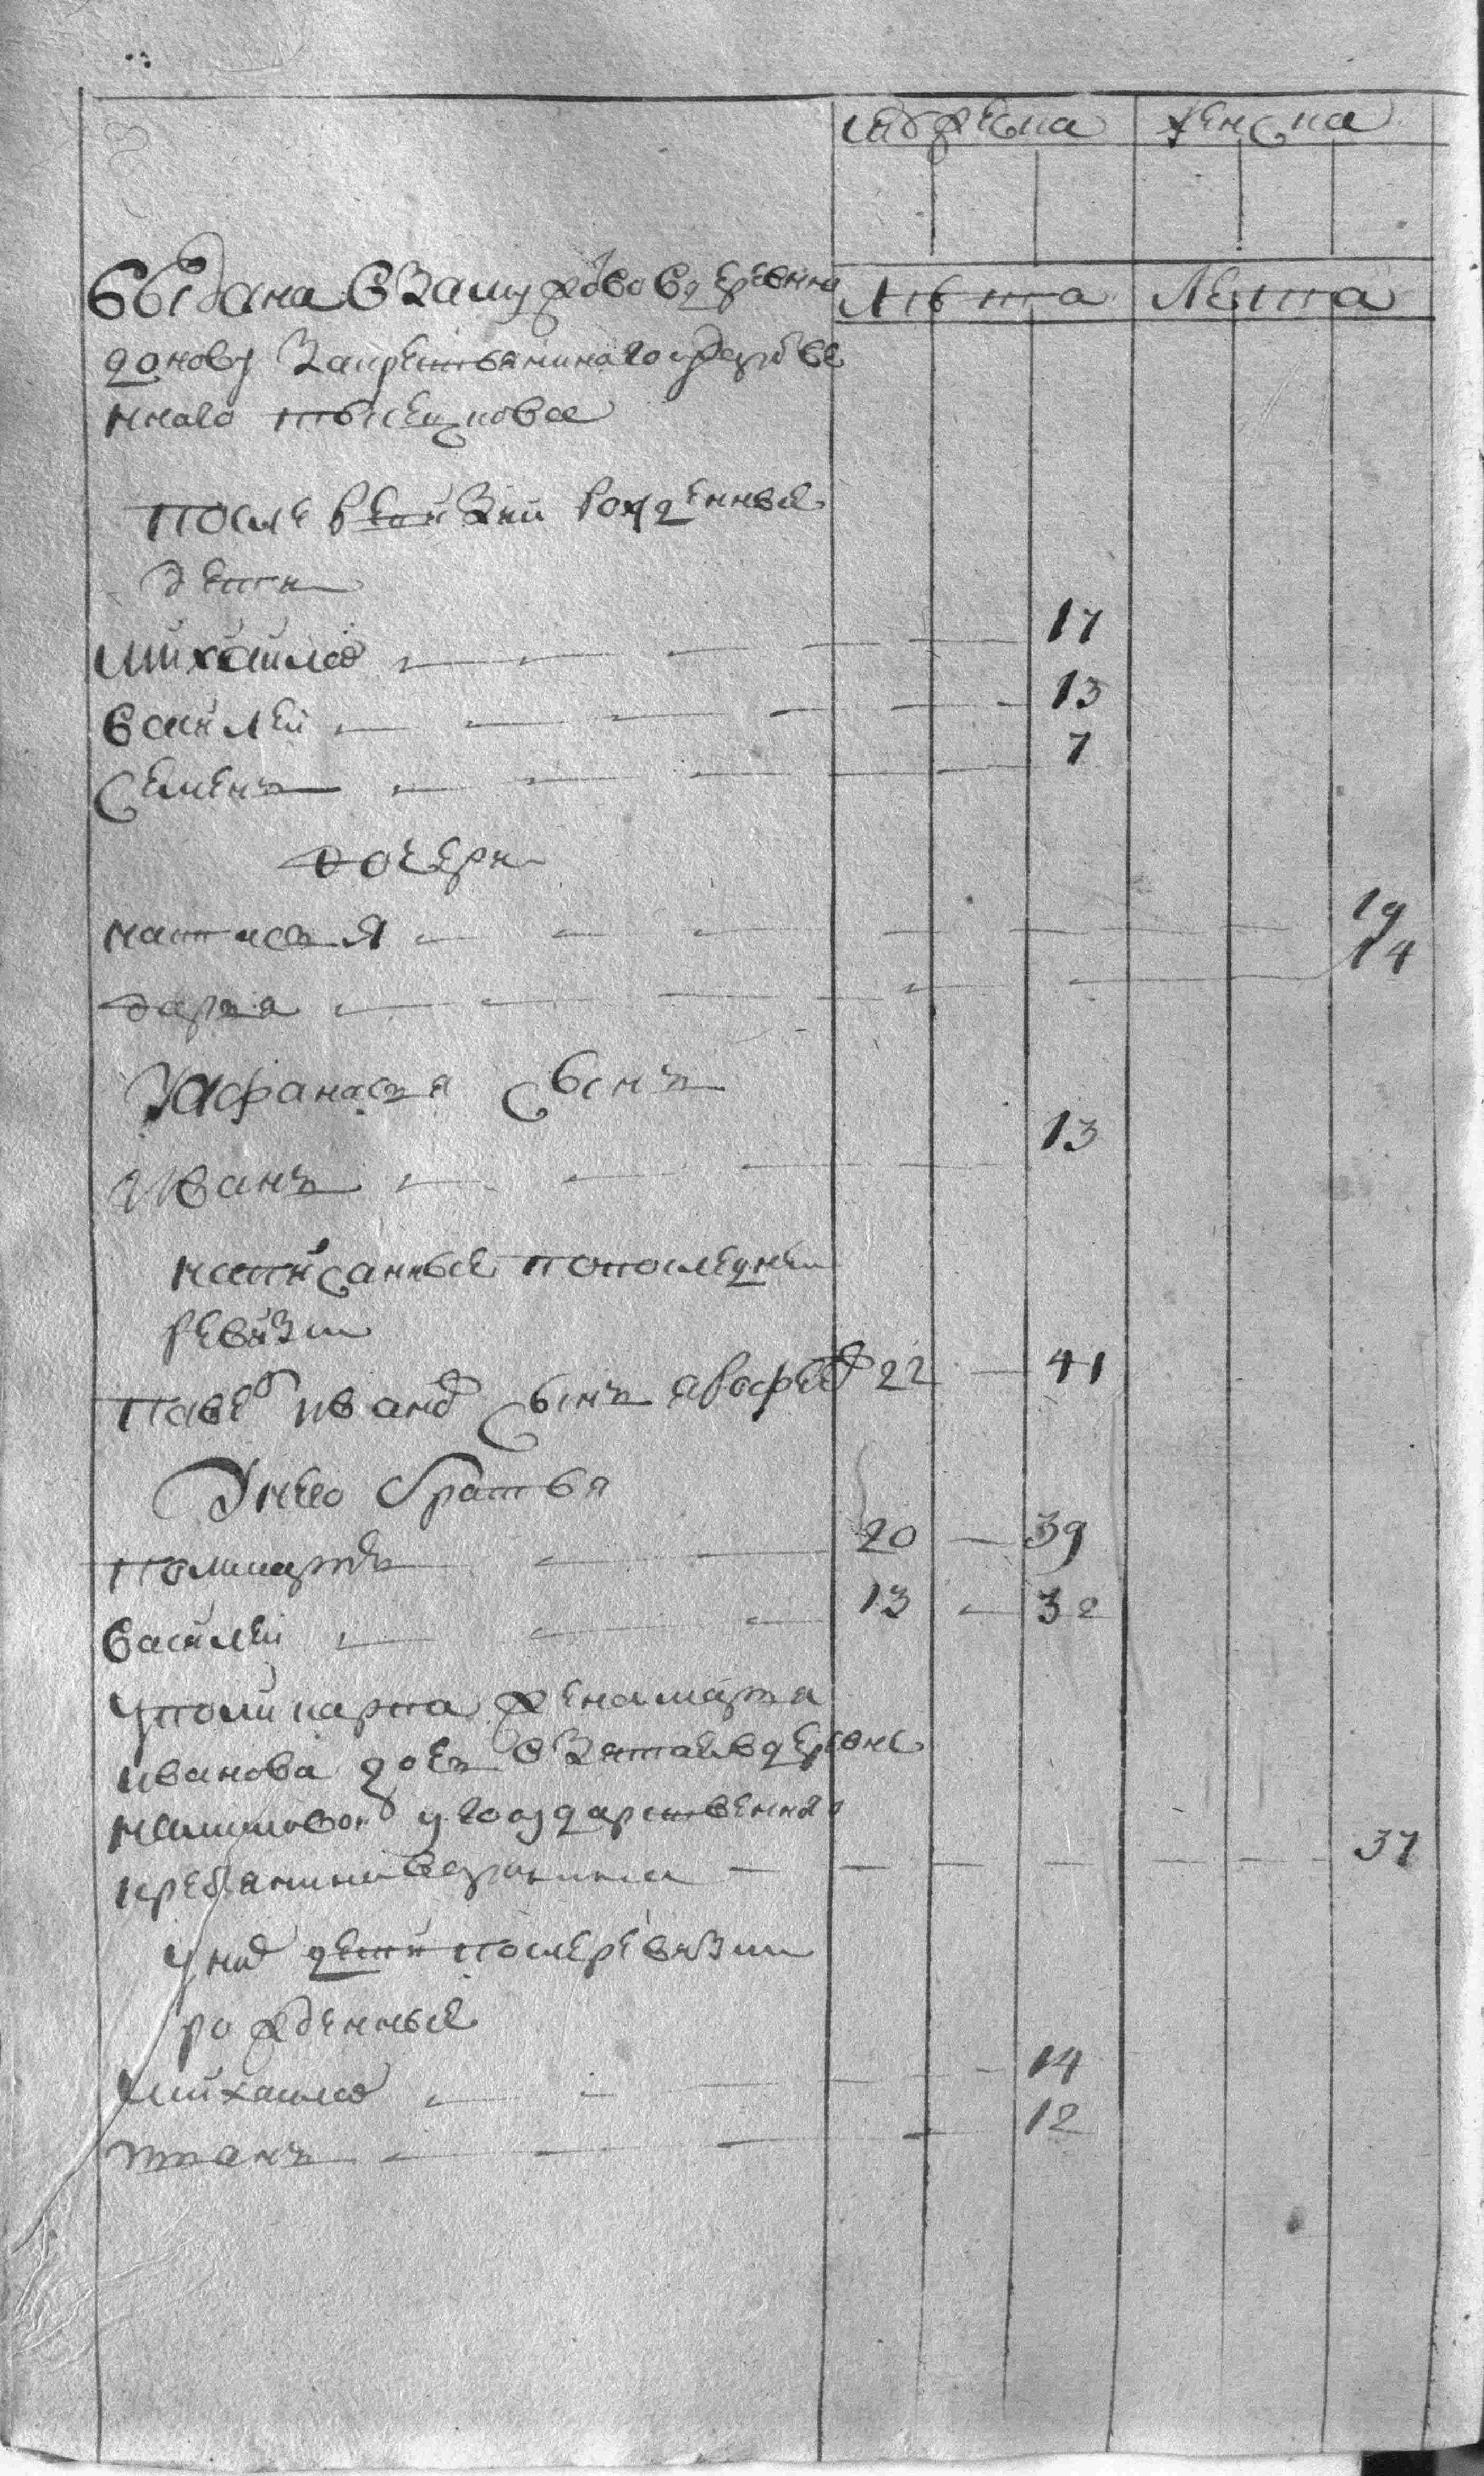 мужеска женска
выдана в замужство в деревню лѣта лета
донову за крестьянина государстве
ннаго
после ревизии рожденные
дети
михайло 17
василей 13
семенъ 7
дочери
настасья 19
дарья 14
У афанасья сынъ
Иванъ 13
написанные по последней
ревизии
Павелъ ивановъ сынъ 22 41
У него братья
поликарпъ 20 39
василей 13 32
у поликарпа жена марья
иванова дочь взята в деревне
у государственнаго
крестьянина 37
у них дети после ревизии
рожденные
михайло 14
иванъ 12